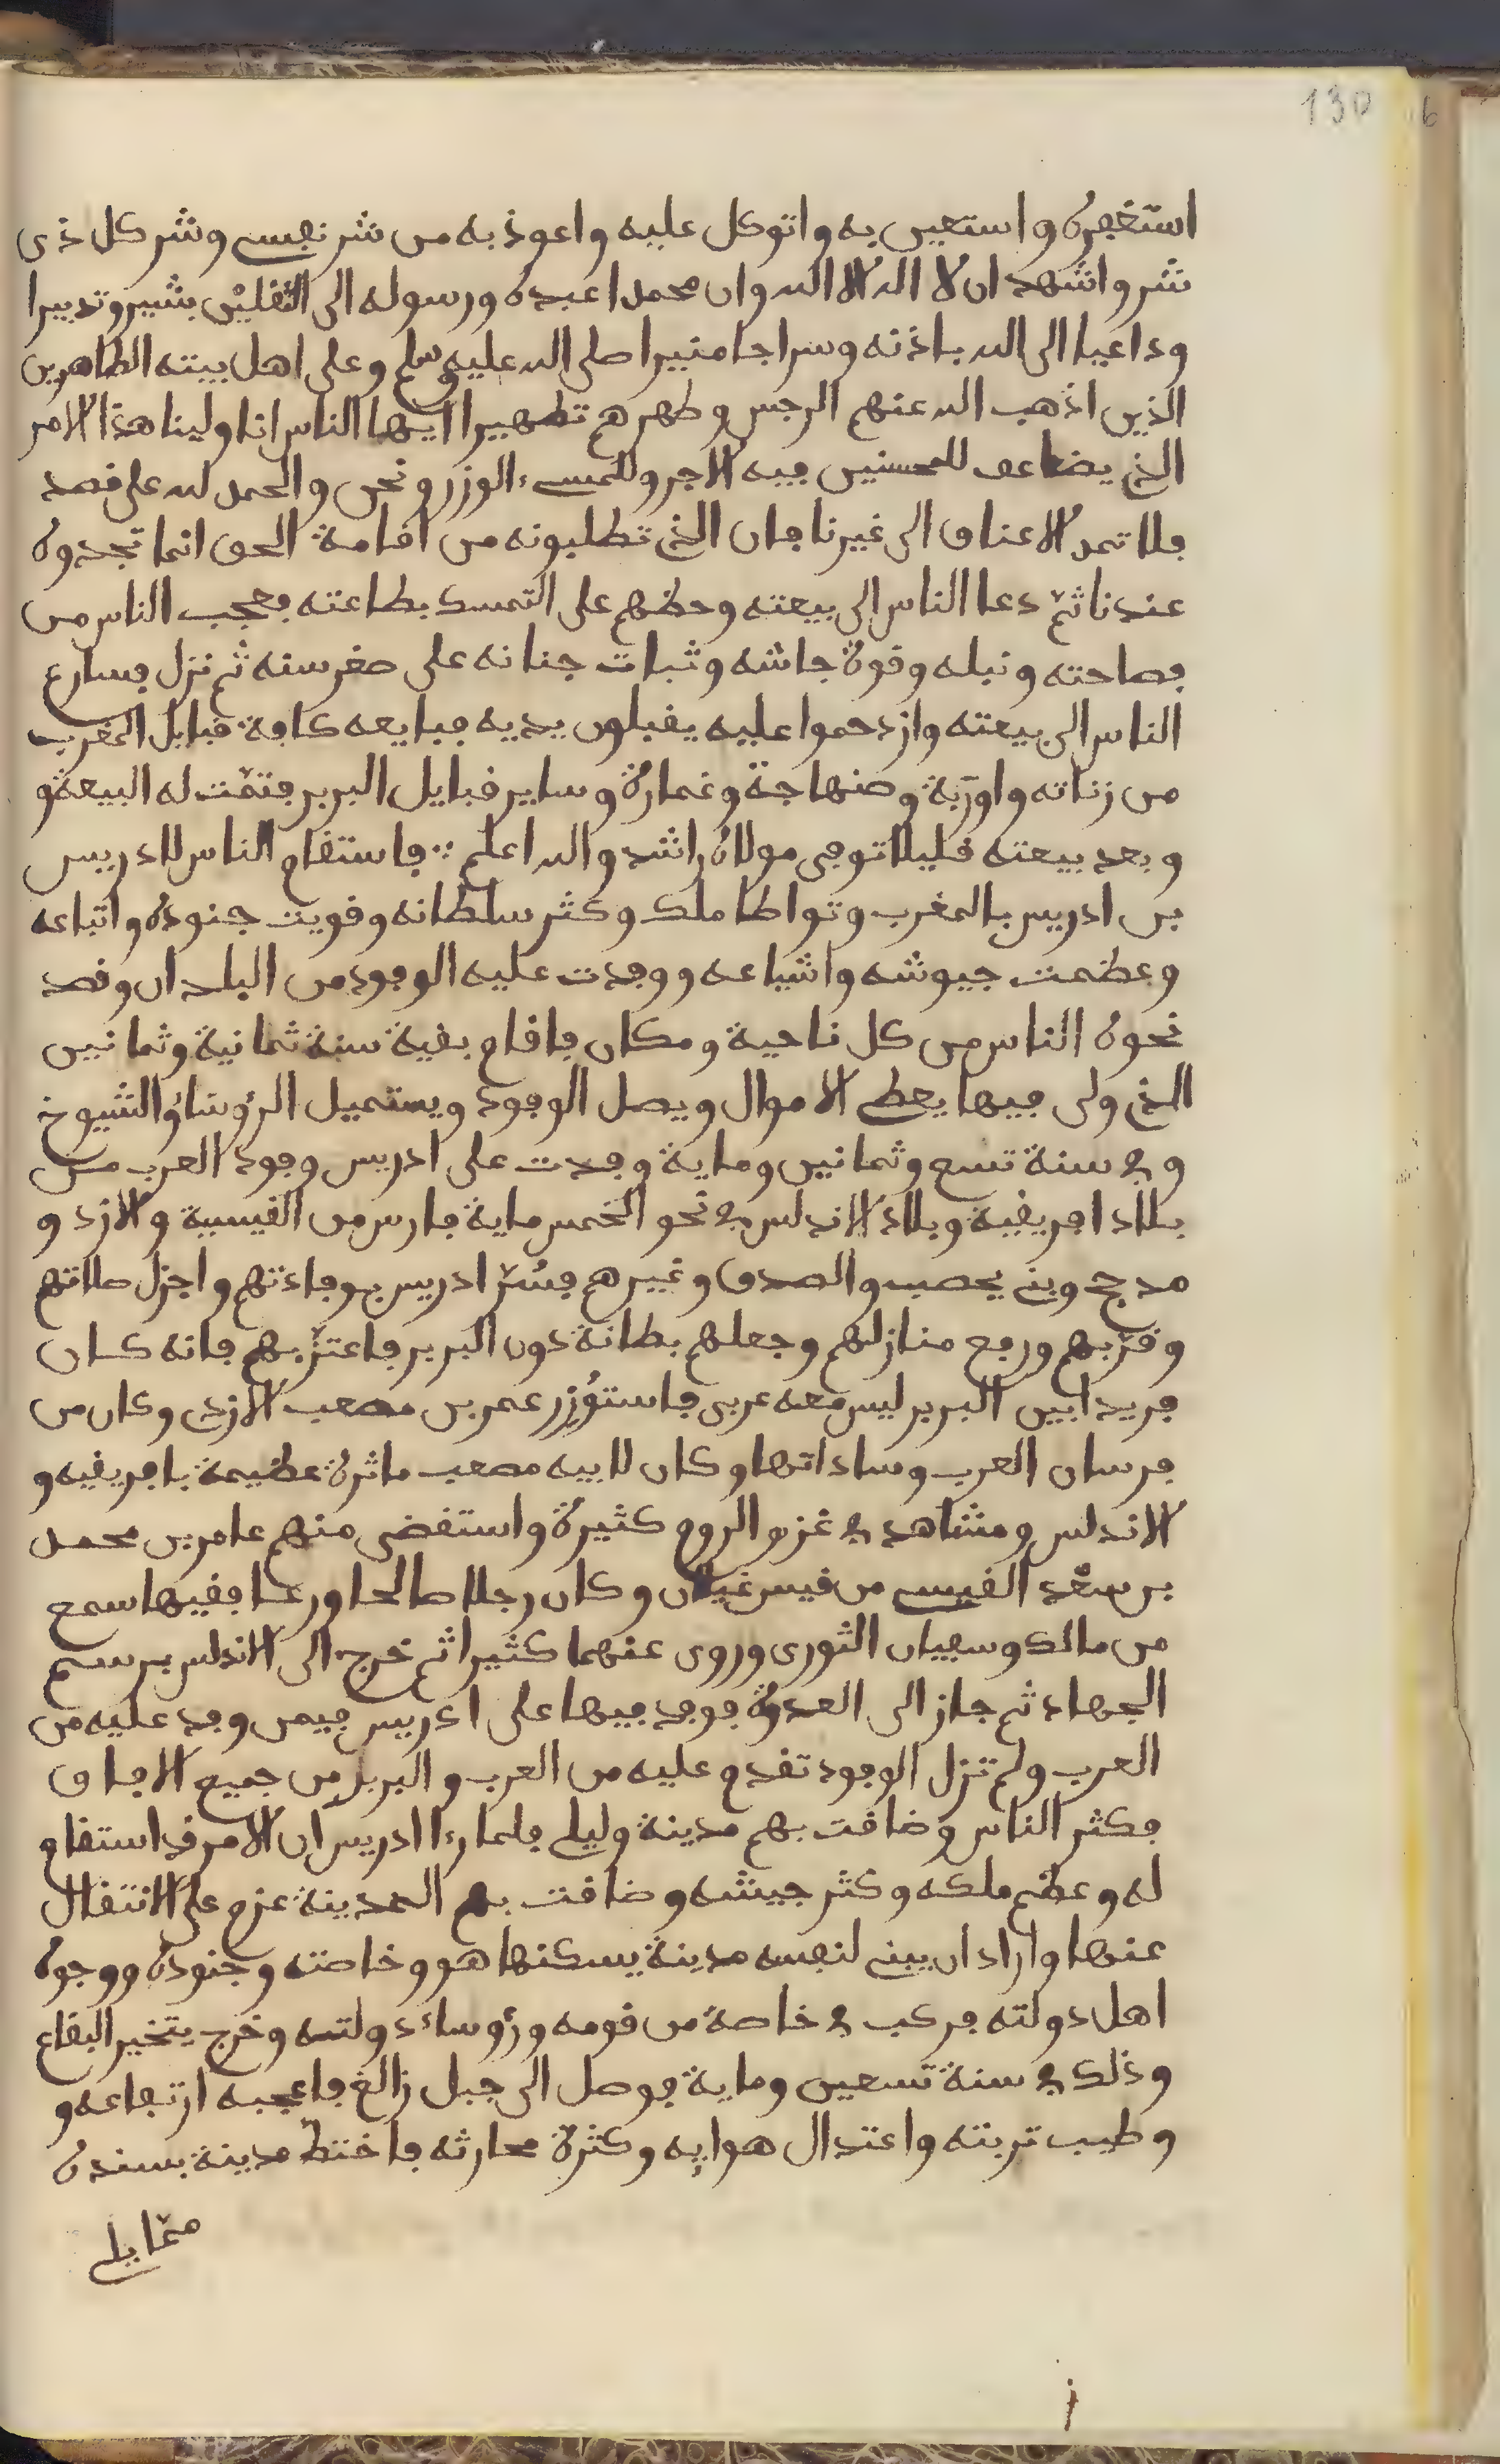 130
6
استغفره واستعين به واتوكل عليه واعوذ به من شر نفسي وشر كل ذى
شر واشهد ان لا اله الا الله وان محمدا عبده ورسوله الى الثقلين بشيرو نذيرا
وداعيا الى الله باذنه وسراجا منيرا صلى الله عليه وسلم وعلى اهل بيته الطاهرين
الذين اذهب الله عنهم الرجس وطهرهم تطهيرا ايها الناس انا ولينا هذا الامر
الذي يضاعف للمحسنين فيه الاجر وللمسيء الوزر ونحن والحمد لله على قصد
فلا تمد الاعناق الى غيرنا فان الذي تطلبونه من اقامة الحق انما تجدوه
عندنا ثم دعا الناس الى بيعته وحظهم على التمسك بطاعته فعجب الناس من
فصاحته ونبله وقوة جاشه وثبات جنانه على صغر سنه ثم نزل فسارع
الناس الى بيعته وازدحموا عليه يقبلون يديه فبايعه كافة قبايل المغرب
من زناته واوربة وصنهاجة وغمارة وساير قبايل البربر فتمت له البيعة و
وبعد بيعته قليلا توفى مولاه راشد والله اعلم فاستقام الناس لادريس
بن ادريس بالمغرب وتواطا ملك وكثر سلطانه وقويت جنوده واتباعه
وعظمت جيوشه واشياعه ووفدت عليه الوفود من البلدان وقصد
نحوه الناس من كل ناحية ومكان فاقام بقية سنة ثمانية وثمانين
الذي ولى فيها يعطي الاموال ويصل الوفود ويستميل الرؤساؤ الشيوخ
وفي سنة تسع وثمانين وماية وفدت على ادريس وفود العرب من
بلاد افريقية وبلاد الاندلس في نحو الخمس ماية فارس من القيسية والازد و
مدجح وبني يحصب والصدف وغيرهم فسر ادريس بوفادتهم واجزل صلاتهم
وقربهم ورفع منازلهم وجعلهم بطانة دون البربر فاعتز بهم فانه كان
فريدا بين البربر ليس معه عربى فاستوزر عمر بن مصعب الازدي وكان من
فرسان العرب وساداتها وكان لابيه مصعب ماثرة عظيمة بافريقيه و
الاندلس ومشاهد في غزو الروم كثيرة واستقضى منهم عامر بن محمد
بن سعد القيسي من قيس غيلان وكان رجلا صالحا ورعا فقيها سمع
من مالك وسفيان الثورى وروى عنهما كثيرا ثم خرج الى الاندلس برسم
الجهاد ثم جاز الى العدوة فوفد فيها على ادريس فيمن وفد عليه من
العرب ولم تزل الوفود تقدم عليه من العرب والبربر من جميع الافاق
فكثر الناس وضاقت بهم مدينة وليلي فلما رءا ادريس ان الامر قد استقام
له وعظم ملكه وكثر جيشه وضاقت بهم المدينة عزم على الانتقال
عنها واراد ان يبني لنفسه مدينة يسكنها هو وخاصته وجنوده ووجوه
اهل دولته فركب في خاصة من قومه ورؤساء دولته وخرج يتخير البقاع
وذلك في سنة تسعين وماية فوصل الى جبل زالغ فاعجبه ارتفاعه و
وطيب تربته واعتدال هوايه وكثرة محارثه فاختط مدينة بسنده
مما يلي